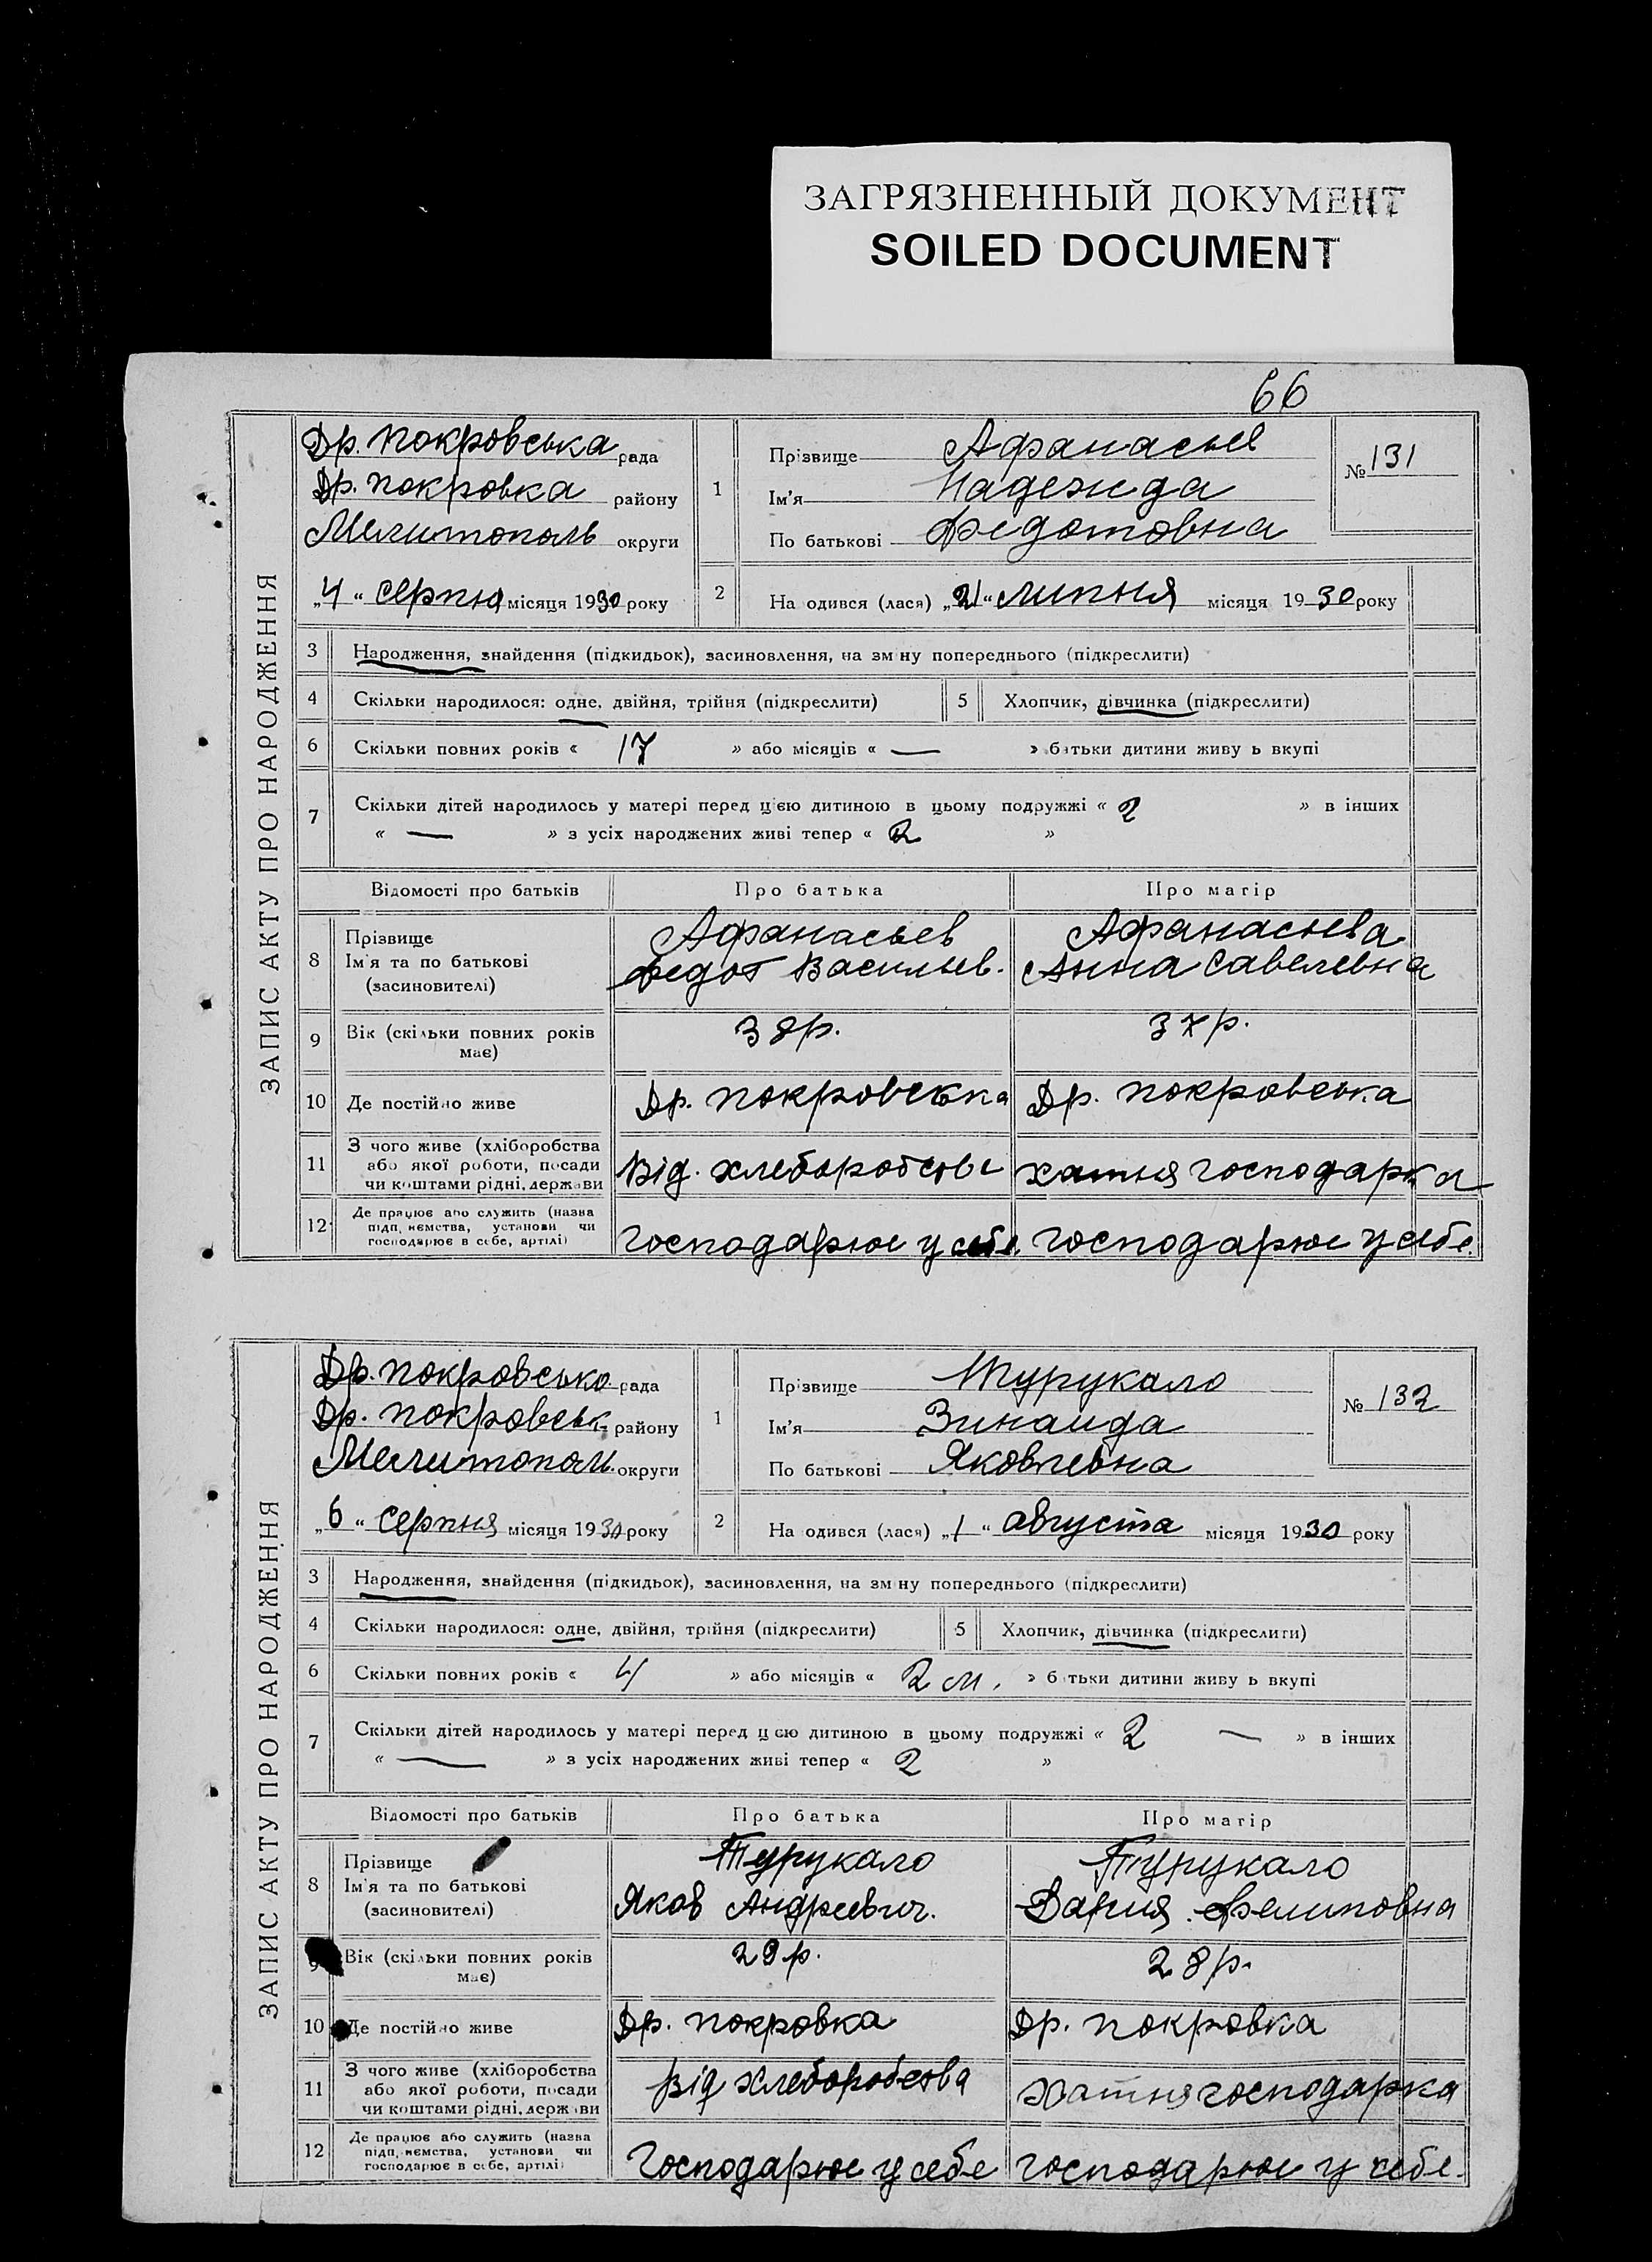 ЗАГРЯЗНЕННЫЙ ДОКУМЕНТ
SOILED DOCUMENT
66
ЗАПИС АКТУ ПРО НАРОДЖЕННЯ
Др. покровська рада
Др. покровка району
Мелитополь округи
„4“ серпня місяця 1930 року
1
Прізвище Афанасьев
Ім'я Надежда
По батькові Федотовна
№ 131
2 На одився (лася) „21“ липня місяця 1930 року
3 Народження, знайдення (підкидьок), засиновлення, на зм ну попереднього (підкреслити)
4 Скільки народилося: одне, двійня, трійня (підкреслити) 5 Хлопчик, дівчинка (підкреслити)
6 Скільки повних років « 17 » або місяців « — » батьки дитини живу ь вкупі
7 Скільки дітей народилось у матері перед цією дитиною в цьому подружжі « 2 » в інших
« — » з усіх народжених живі тепер « 2 »
Відомості про батьків Про батька Про матір
8 Прізвище Афанасьев Афанасьева
Ім'я та по батькові Федот Васильев. Анна Савелевна
(засиновителі)
9 Вік (скільки повних років має) 38р. 37р.
10 Де постійно живе Др. покровська Др. покровська
11 З чого живе (хліборобства
або якої роботи, посади
чи коштами рідні, держави Від. хлеборобства хатня господарка
12 Де працює або служить (назва
підп, иємства, установи чи
господарює в себе, артілі) господарює у себе. господарює у себе.
ЗАПИС АКТУ ПРО НАРОДЖЕННЯ
Др. покровсько рада
Др. покровськ. району
Мелитопол. округи
„6“ серпня місяця 1930 року
1
Прізвище Турукало
Ім'я Зинаида
По батькові Яковлевна
№ 132
2 На одився (лася) „1“ августа місяця 1930 року
3 Народження, знайдення (підкидьок), засиновлення, на зм ну попереднього (підкреслити)
4 Скільки народилося: одне, двійня, трійня (підкреслити) 5 Хлопчик, дівчинка (підкреслити)
6 Скільки повних років « 4 » або місяців « 2 м. » б тьки дитини живу ь вкупі
7 Скільки дітей народилось у матері перед цією дитиною в цьому подружжі « 2 — » в інших
« — » з усіх народжених живі тепер « 2 »
Відомості про батьків Про батька Про матір
8 Прізвище Турукало Турукало
Ім'я та по батькові Яков Андреевич. Дария Фелиповна
(засиновителі)
9 Вік (скільки повних років має) 29р. 28р.
10 Де постійно живе Др. покровка Др. покровка
11 З чого живе (хліборобства
або якої роботи, посади
чи коштами рідні, держ ви Від хлеборобства хатня господарка
12 Де працює або служить (назва
підп, иємства, установи чи
господарює в себе, артілі) Господарює у себе господарює у себе.